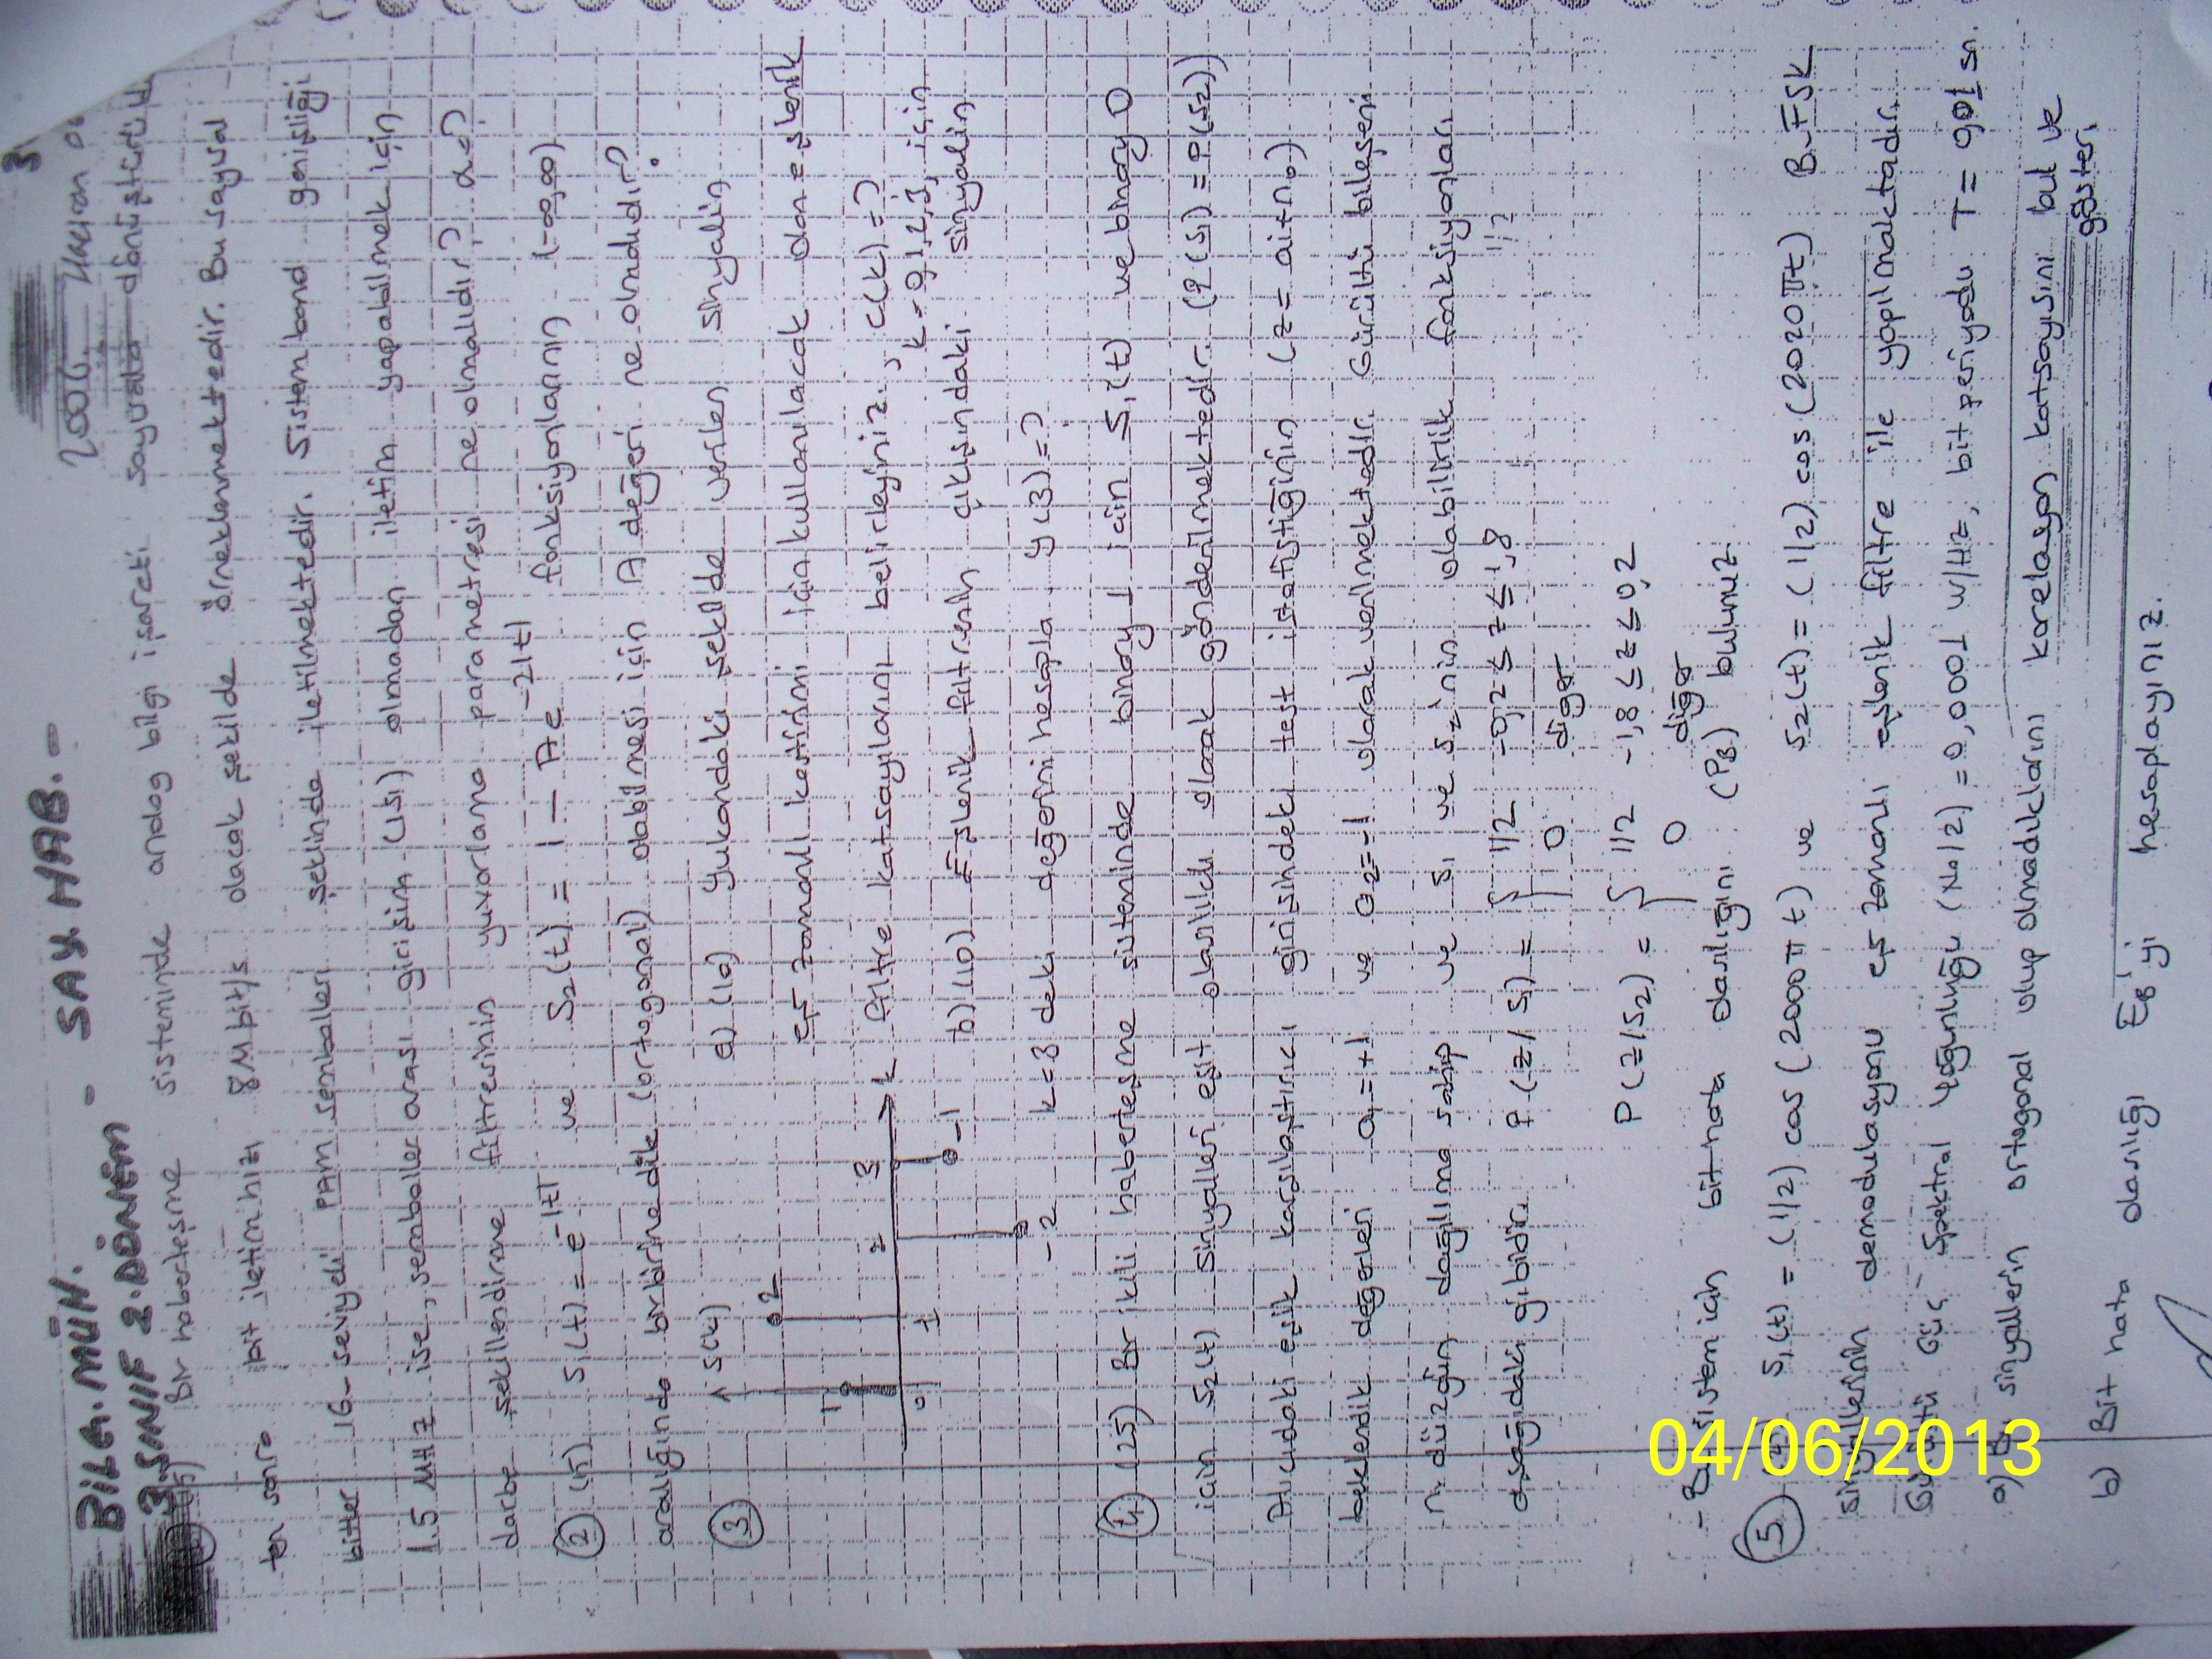 3.
BİLG. MÜH. - SAY. HAB. -
3. SINIF 2. DÖNEM
2006
Bir haberleşme sisteminde analog bilgi işareti sayısala dönüştürüldük
ten sonra bit iletim hızı 8Mbit/s olacak şekilde örneklenmektedir. Bu sayısal
bitler 16-seviyeli PAM sembolleri şeklinde iletilmektedir. Sistem band genişliği
1.5 MHz ise, semboller arası girişim (ISI) olmadan iletim yapabilmek için
darbe şekillendirme filtresinin yuvarlama parametresi ne olmalıdır? α=?
2 (15) S1(t) = e^-|t| ve S2(t) = 1 - Ae^-2|t| fonksiyonlarının (-∞,∞)
aralığında birbirine dik (ortogonal) olabilmesi için A değeri ne olmalıdır?
3 s(k) a) (10) Yukarıdaki şekilde verilen sinyalin
eş zamanlı kestirimi için kullanılacak olan eşlenik
filtre katsayılarını belirleyiniz., c(k)=?
k=0,1,2,3, için
b) (10) Eşlenik filtrenin çıkışındaki sinyalin
k=3 deki değerini hesapla y(3)=?
1 2 -2 -1
0 1 2 3 k
4 (25) Bir ikili haberleşme sisteminde binary 1 için S1(t) ve binary 0
için S2(t) sinyalleri eşit olasılıklı olarak gönderilmektedir. (P(S1) = P(S2))
Alıcıdaki eşik karşılaştırıcı girişindeki test istatistiğinin (z = ai+n0)
beklendik değerleri a1=+1 ve a2=-1 olarak verilmektedir. Gürültü bileşeni
n düzgün dağılıma sahip ve S1 ve S2'nin olabilirlik fonksiyonları
aşağıdaki gibidir. P(z/S1) = { 1/2 -0,2 ≤ z ≤ 1,8
0 diğer
1/2
P(z/S2) = { 1/2 -1,8 ≤ z ≤ 0,2
0 diğer
- Bu sistem için bit hata olasılığını (PB) bulunuz.
5 S1(t) = (1/2) cos(2000πt) ve S2(t) = (1/2) cos(2020πt) B-FSK
sinyallerinin demodulasyonu eş zamanlı eşlenik filtre ile yapılmaktadır.
Gürültü Güç Spektral Yoğunluğu (No/2) = 0,0001 W/Hz, bit periyodu T = 0,01 sn.
a) Bu sinyallerin ortogonal olup olmadıklarını korelasyon katsayısını bul ve
göster.
b) Bit hata olasılığı EB'yi hesaplayınız.
04/06/2013